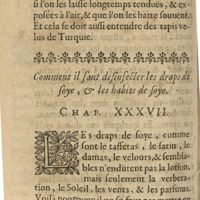 si l'on les laisse longtemps tenduës, & ex-
posées à l'air, & que l'on les batte souvent.
Et cela se doit aussi entendre des tapis ve-
lus de Turquie.
Comment il faut desinfecter les draps de
soye, & les habits de soye.
CHAP. XXXVII.
LEs draps de soye, comme
sont le taffetas, le satin, le
damas, le velours, & sembla-
bles n'endurent pas la lotion,
mais seulement la verbera-
tion, le Soleil, les vents, & les parfums.